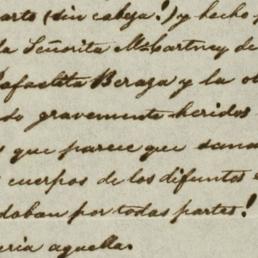 arto (sin cabeza!) y hecho
la Señorita McCartney de
Rafaelita Beraza y la o
do gravemente heridos
que parece que
cuerpos de los difuntos
daban por todas partes!
eria aquella